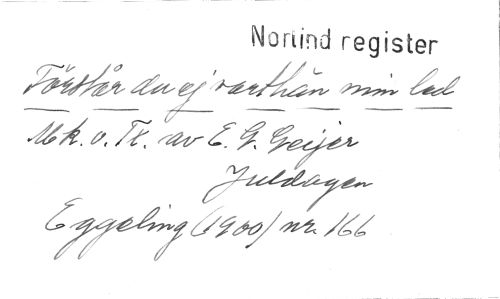 Norlind register
Förstår du ej varthän min led
Mk. o. Tx. av E. G. Geijer
Juldagen
Eggeling (1900) nr. 166